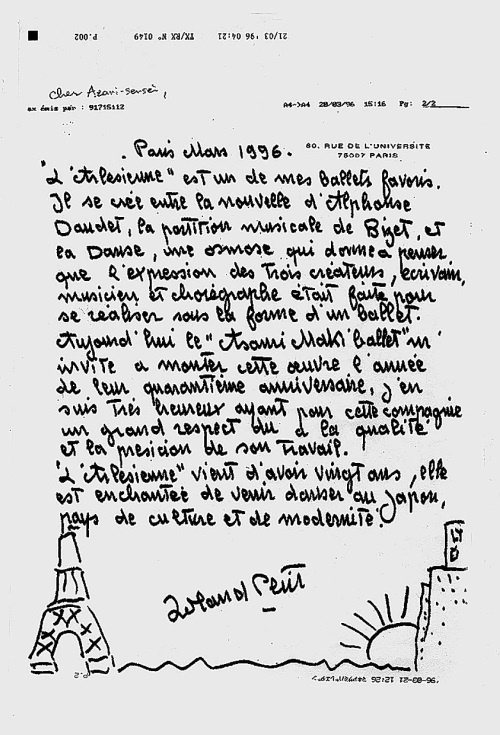 21/03 '96 04:21 TX/RX N° 0149 P.002
Cher Asari-sensei,
ex émis par : 91715112 A4->A4 20/03/96 15:16 Pg: 2/2
60. RUE DE L'UNIVERSITÉ
75007 PARIS
Paris Mars 1996.
"L'Arlésienne" est un de mes ballets favoris.
Il se crée entre la nouvelle d'Alphonse
Daudet, la partition musicale de Bizet, et
la Danse, une osmose qui donne à penser
que l'expression des trois créateurs, écrivain,
musicien et chorégraphe était faite pour
se réaliser sous la forme d'un ballet.
Aujourd'hui le "Asami Maki ballet" m'
invite a monter cette œuvre l'année
de leur quarantième anniversaire, j'en
suis très heureux ayant pour cette compagnie
un grand respect du à la qualité
et la présicion de son travail.
"L'Arlésienne" vient d'avoir vingt ans, elle
est enchanteé de venir danser au Japon,
pays de culture et de modernité.
Roland Petit
P.2